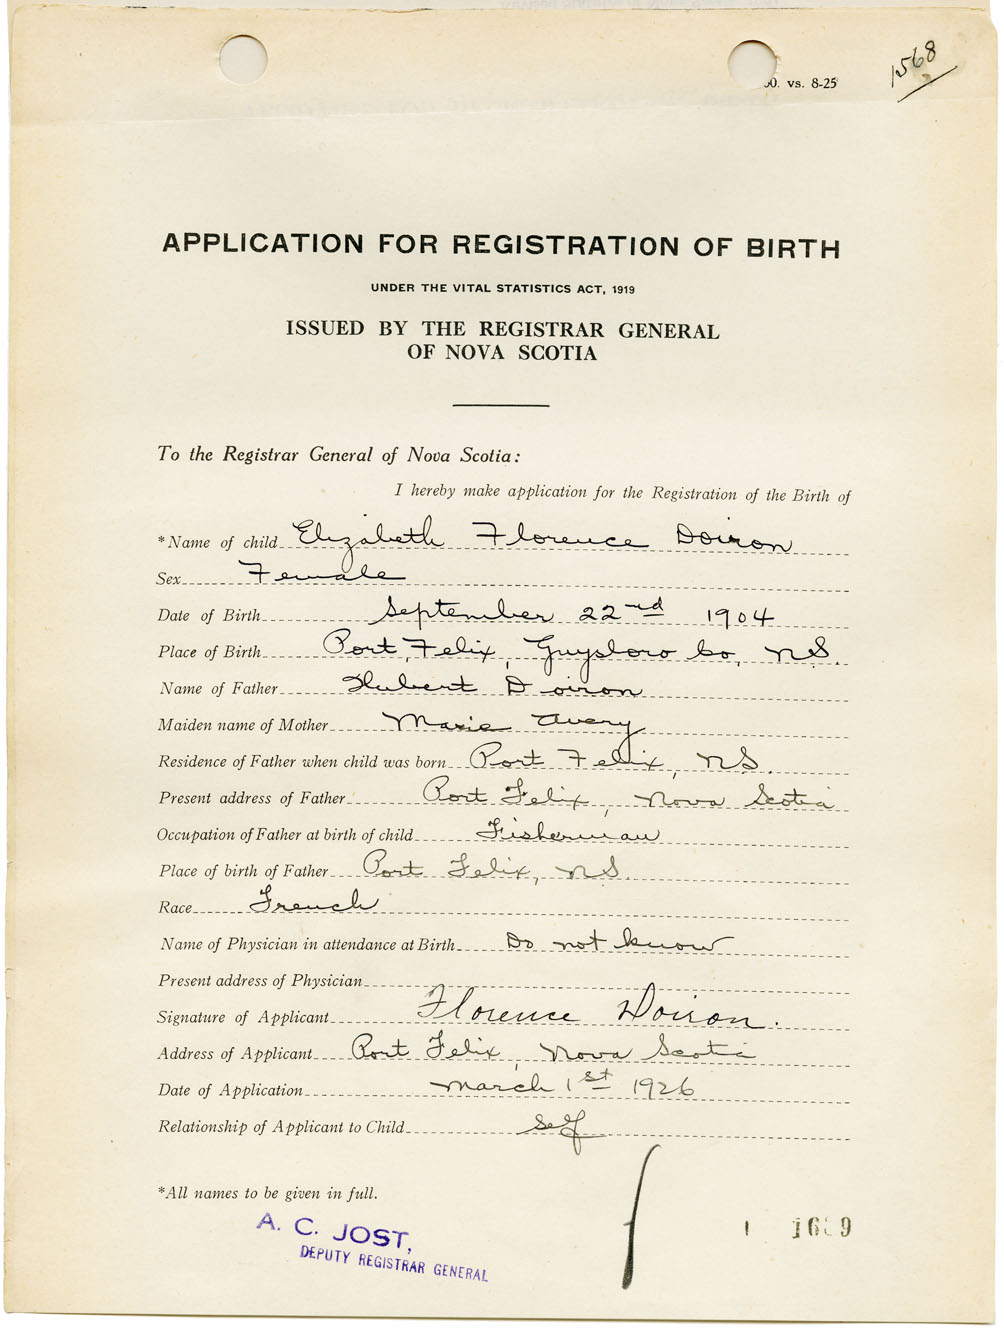 1568
00. vs. 8-25
APPLICATION FOR REGISTRATION OF BIRTH
UNDER THE VITAL STATISTICS ACT, 1919
ISSUED BY THE REGISTRAR GENERAL
OF NOVA SCOTIA
To the Registrar General of Nova Scotia:
I hereby make application for the Registration of the Birth of
*Name of child Elizabeth Florence Doiron
Sex Female
Date of Birth September 22nd 1904
Place of Birth Port Felix, Guysboro Co, N.S.
Name of Father Hubert Doiron
Maiden name of Mother Marie Avery
Residence of Father when child was born Port Felix, N.S.
Present address of Father Port Felix, Nova Scotia
Occupation of Father at birth of child Fisherman
Place of birth of Father Port Felix, N.S.
Race French
Name of Physician in attendance at Birth Do not know
Present address of Physician
Signature of Applicant Florence Doiron.
Address of Applicant Port Felix, Nova Scotia
Date of Application March 1st 1926
Relationship of Applicant to Child self
*All names to be given in full.
A. C. JOST,
DEPUTY REGISTRAR GENERAL